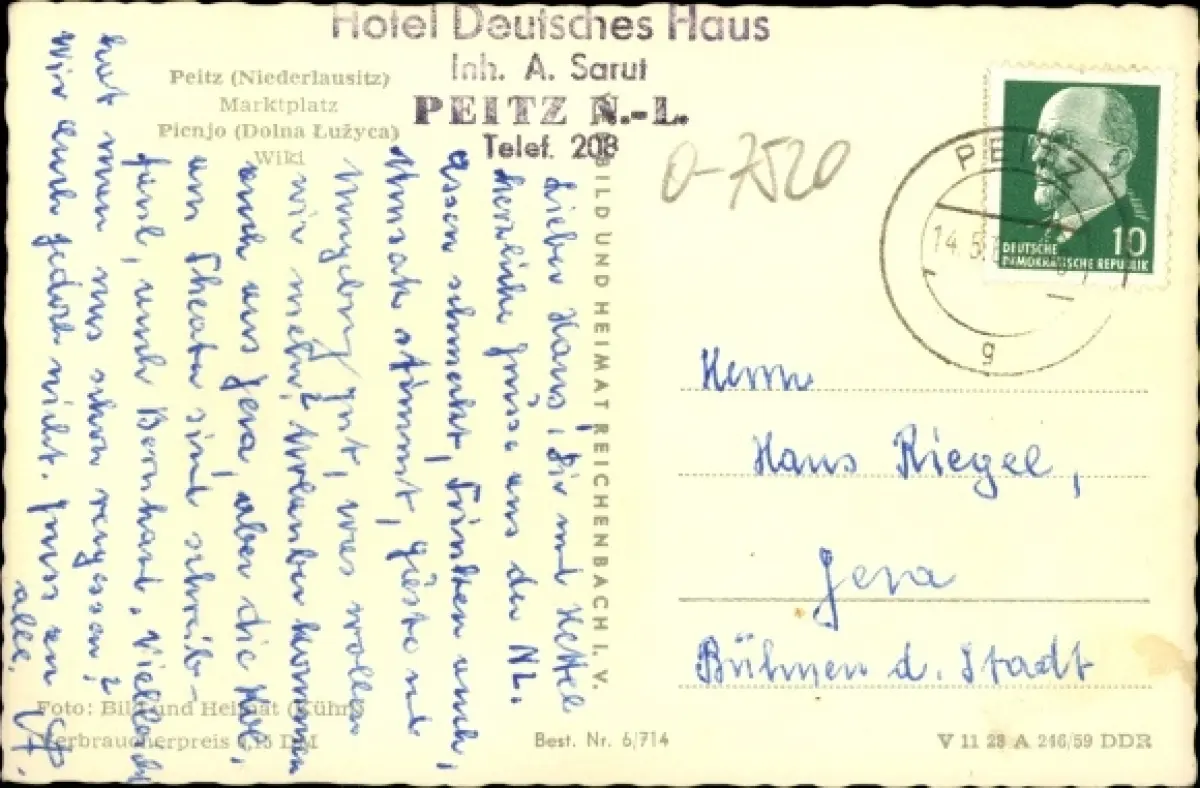 Hotel Deutsches Haus
Inh. A. Sarut
PEITZ N.-L.
Telef. 208
Peitz (Niederlausitz)
Marktplatz
Picnjo (Dolna Łužyca)
Wiki
0-7520
PEITZ
14.5.
g
10
DEUTSCHE
DEMOKRATISCHE REPUBLIK
Lieber Hans, Dir und
herzliche Grüsse aus der NL.
Essen schmeckt, Trinken auch,
Umsatz stimmt, Gäste und
Umgebung gut, was wollen
wir mehr? Urlauber kommen
auch aus Jena, aber die
am Theater sind schreib-
faul, auch Bernhard. Vielleicht
hat man uns schon vergessen?
Wir Euch jedoch nicht. Gruss an
alle.
BILD UND HEIMAT REICHENBACH I. V.
Herrn
Hans Riegel,
Jena
Bühnen d. Stadt
Foto: Bild und Heimat (Kühn)
Verbraucherpreis 0,15 DM
Best. Nr. 6/714
V 11 28 A 216/59 DDR